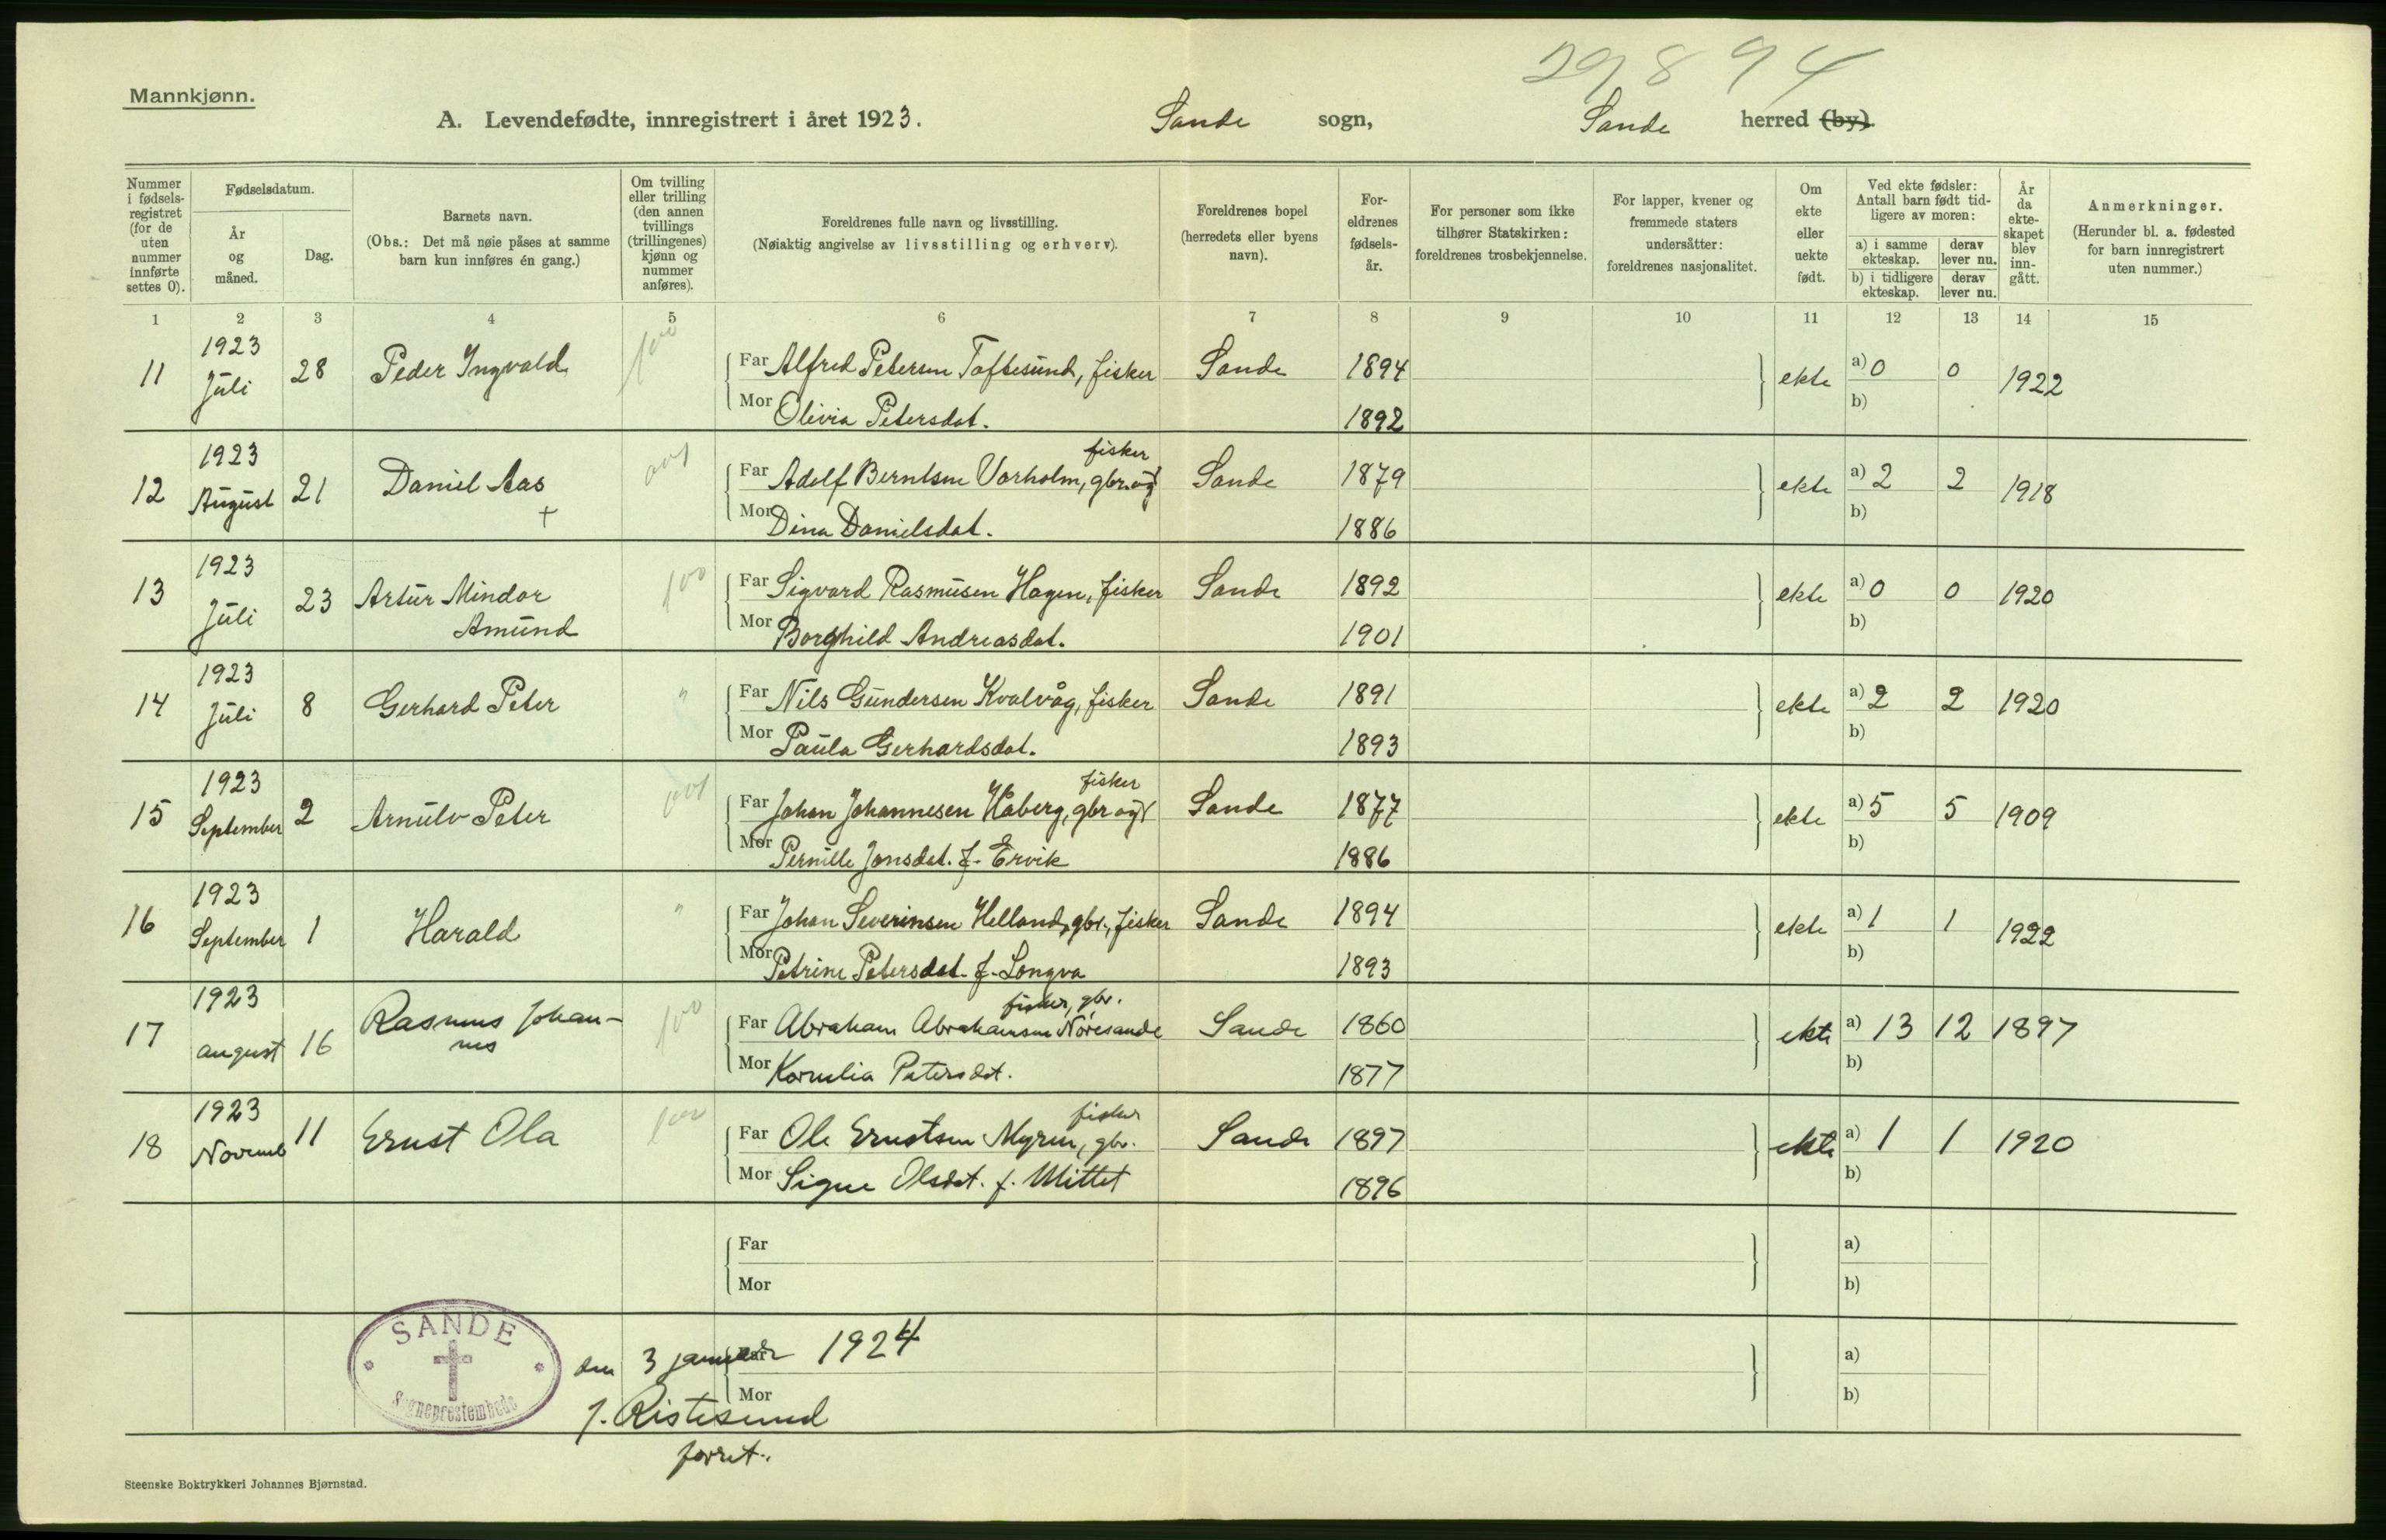 29894
Mannkjønn.
A. Levendefødte, innregistrert i året 1923. Sande sogn, Sande herred (by).
Nummer i fødsels-registret (for de uten nummer innførte settes 0).
Fødselsdatum.
År og måned.
Dag.
Barnets navn.
(Obs.: Det må nøie påses at samme barn kun innføres én gang.)
Om tvilling eller trilling (den annen tvillings (trillingenes) kjønn og nummer anføres).
Foreldrenes fulle navn og livsstilling.
(Nøiaktig angivelse av livsstilling og erhverv).
Foreldrenes bopel (herredets eller byens navn).
For-eldrenes fødsels-år.
For personer som ikke tilhører Statskirken: foreldrenes trosbekjennelse.
For lapper, kvener og fremmede staters undersåtter: foreldrenes nasjonalitet.
Om ekte eller uekte født.
Ved ekte fødsler: Antall barn født tid-ligere av moren:
a) i samme ekteskap.
derav lever nu.
b) i tidligere ekteskap.
derav lever nu.
År da ekte-skapet blev inn-gått.
Anmerkninger.
(Herunder bl. a. fødested for barn innregistrert uten nummer.)
1 2 3 4 5 6 7 8 9 10 11 12 13 14 15
11 1923 Juli 28 Peder Ingvald 100 Far Alfred Petersen Taftesund, fisker Sande 1894 ekte a) 0 0 1922
Mor Olivia Petersdat. 1892 b)
12 1923 August 21 Daniel Aas + Far Adolf Berntsen Vorholm, gbr. og fisker Sande 1879 ekte a) 2 2 1918
Mor Dina Danielsdat. 1886 b)
13 1923 Juli 23 Artur Mindor Amund 100 Far Sigvard Rasmusen Hagen, fisker Sande 1892 ekte a) 0 0 1920
Mor Borghild Andreasdat. 1901 b)
14 1923 Juli 8 Gerhard Peter " Far Nils Gundersen Kvalvåg, fisker Sande 1891 ekte a) 2 2 1920
Mor Paula Gerhardsdat. 1893 b)
15 1923 September 2 Arnulv Peter Far Johan Johannesen Håberg, gbr og fisker Sande 1877 ekte a) 5 5 1909
Mor Pernille Jonsdat. f. Ervik 1886 b)
16 1923 September 1 Harald " Far Johan Severinsen Helland, gbr., fisker Sande 1894 ekte a) 1 1 1922
Mor Petrine Petersdat. f. Longva 1893 b)
17 1923 august 16 Rasmus Johan-nes 100 Far Abraham Abrahamsen Nøresande fisker, gbr. Sande 1860 ekte a) 13 12 1897
Mor Kornelia Petersdt. 1877 b)
18 1923 Novemb 11 Ernst Ola 100 Far Ole Ernstsen Myren, gbr. fisker Sande 1897 ekte a) 1 1 1920
Mor Signe Olsdt. f. Mittet 1896 b)
Far a)
Mor b)
SANDE
Sogneprestembede
den 3 januar 1924
Far a)
Mor b)
J. Ristesund
forret.
Steenske Boktrykkeri Johannes Bjørnstad.